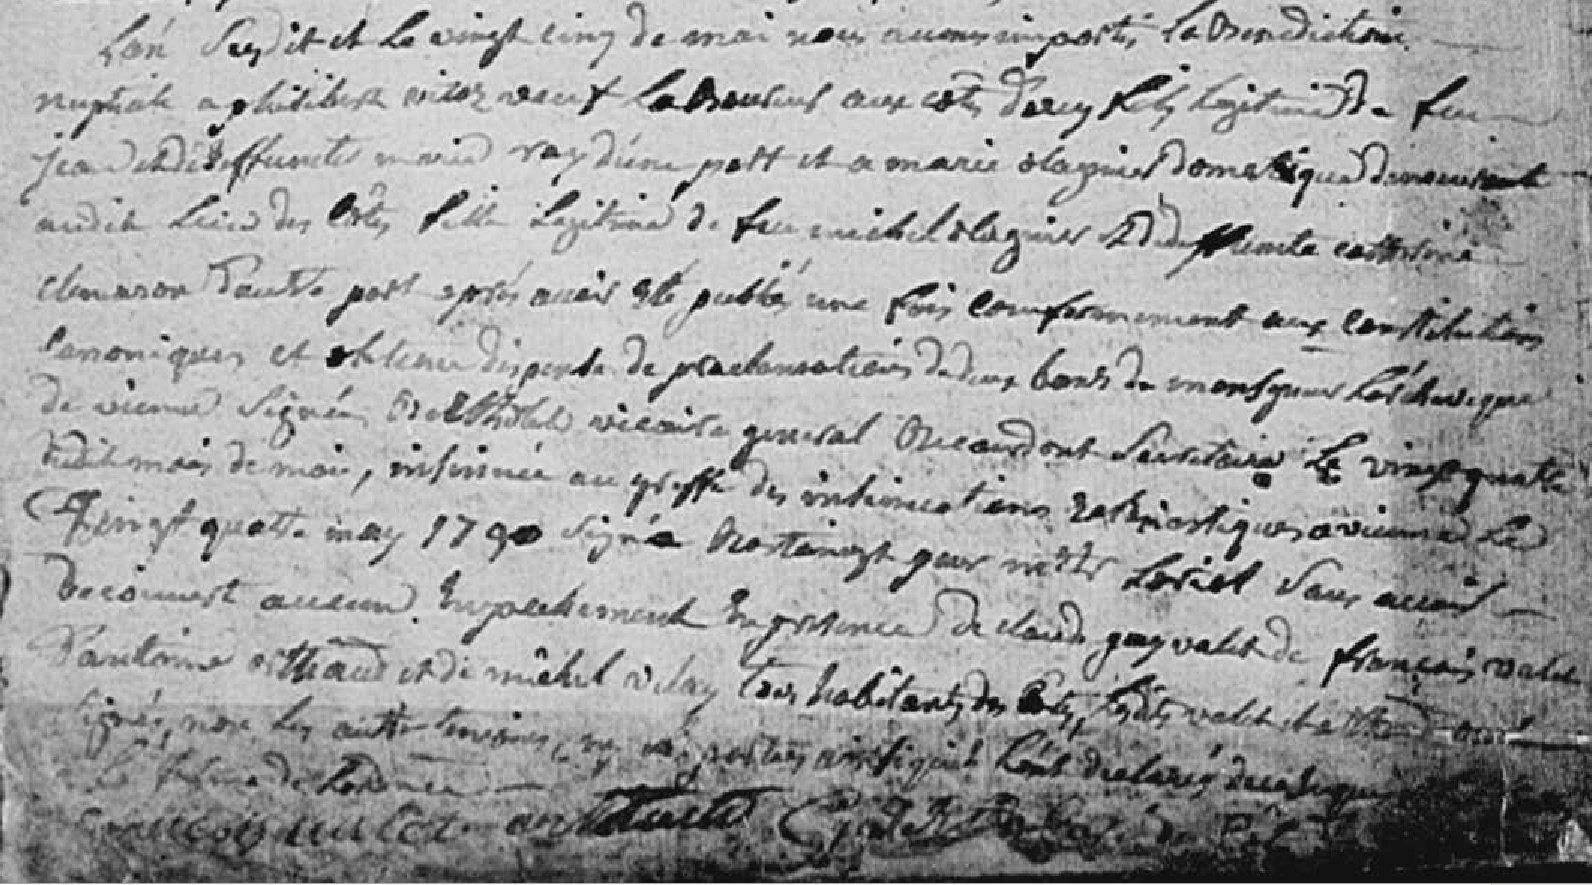 L'an susdit et le vingt cinq de mai nous avons imparti la Benediction
nuptiale a philibert vitoz veuf Laboureur aux cotes d'arey fils legitime de feu
jean et de deffuncte marie ray d'une part et a marie olagnier domestique demeurant
audit lieu des côtes fille legitime de feu michel olagnier et de deffuncte catherine
d'autre part après avoir eté publiés une fois conformement aux constitutions
canoniques et obtenu dispense de proclamations de deux bans de monseigneur L'archeveque
de vienne signée vicaire general secretaire Le vingt quatre
dudit mois de mai, insinuée au greffe des insinuations Eclesiastiques a vienne Le
vingt quatre may 1790 signé pour mr Loriol sans avoir
decouvert aucun Empechement En presence de claude guy valet de françois valet
d'antoine orthaud et de michel velay tous habitants des Côtes, valet et orthaud ont
signés, non les autres temoins, ny les parties qui L'ont declarés de ce requis
françois vallet